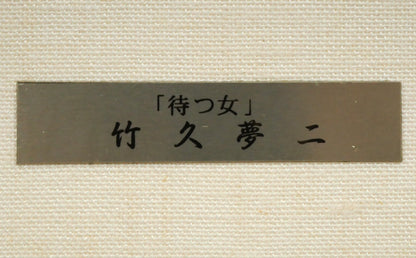 「待つ女」
竹久夢二